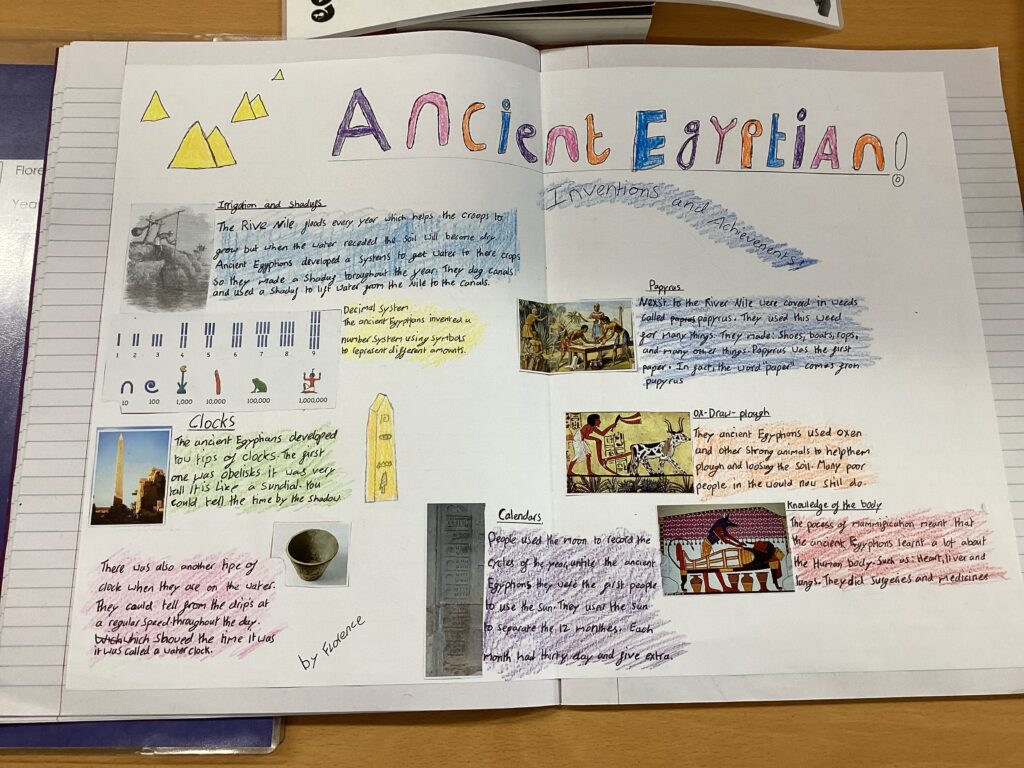 Ancient Egyptian!
Inventions and Achievements!
Irrigation and shadufs
The Rive Nile, floods every year which helps the croops to
grow but when the water receded the soil will become dry.
Ancient Egyptions developed a systems to get water to there crops
So they made a shaduf toroughout the year. They dug canals
and used a shaduf to lift water from the Nile to the canals.
Decimal System
The ancient Egyptians invented a
number System using symbols
to represent different amounts.
1 2 3 4 5 6 7 8 9
10 100 1,000 10,000 100,000 1,000,000
Clocks
The ancient Egyphans developed
tow tips of clocks. The first
one was obelisks it was very
tall it is like a sundial. You
could tell the time by the shadow.
There was also another tipe of
clock when they are on the water.
They could tell from the drips at
a regular speed throughout the day.
which showed the time it was
it was called a water clock.
by Florence
Papyrus
Nexst to the River Nile were coverd in weeds
called papyrus. They used this weed
for many things. They made: Shoes, boats, rops,
and many other things. Papyrus was the first
paper. In fact, the word "paper" comes fron
pupyrus
Ox-Draw-plough
They ancient Egyphons used oxen
and other strong animals to help them
plough and loosing the soil. Many poor
people in the would now still do.
Calendars
People used the moon to record the
cycles of the year, untile the ancient
Egyptions they were the first people
to use the sun. They used the sun
to separate the 12 monthes. Each
month had thirty day and five extra.
Knowledge of the body
The pocess of mammification meant that
the ancient Egyphons learnt a lot about
the Human body. Such as: Heart, liver and
lungs. They did surgenes and medicines
Flore
Yea